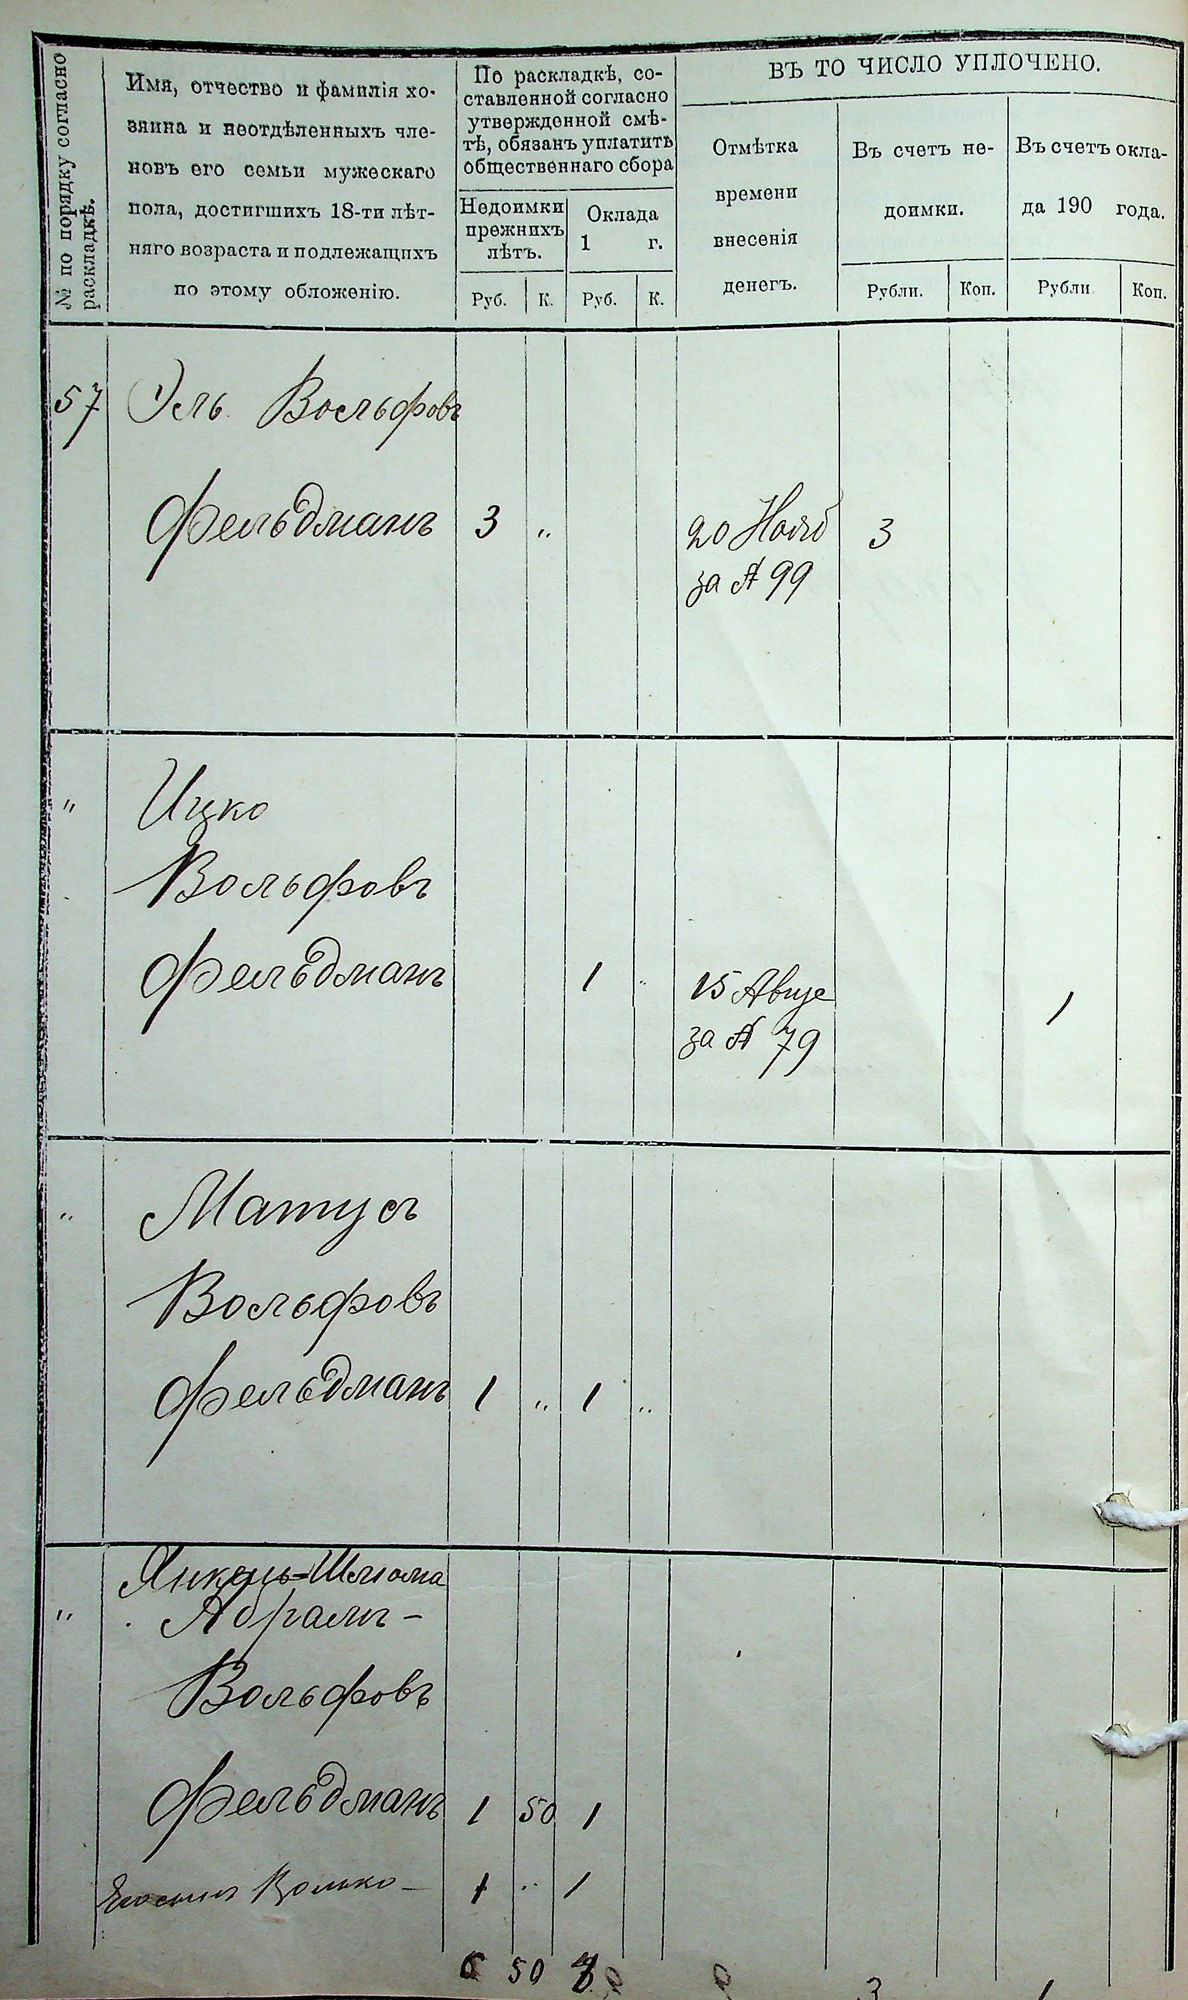 № по порядку согласно
раскладкѣ.
Имя, отчество и фамилія хо-
зяина и неотдѣленныхъ чле-
новъ его семьи мужескаго
пола, достигшихъ 18-ти лѣт-
няго возраста и подлежащихъ
по этому обложенію.
По раскладкѣ, со-
ставленной согласно
утвержденной смѣ-
тѣ, обязанъ уплатить
общественнаго сбора
Недоимки
прежнихъ
лѣтъ.
Оклада
1 г.
Руб. К. Руб. К.
ВЪ ТО ЧИСЛО УПЛОЧЕНО.
Отмѣтка
времени
внесенія
денегъ.
Въ счетъ не-
доимки.
Въ счетъ окла-
да 190 года.
Рубли. Коп. Рубли Коп.
57 Эль Вольфовъ
Фельдманъ 3 „ 20 Нояб 3
за № 99
„ Ицко
Вольфовъ
Фельдманъ 1 „ 15 Авгус 1
за № 79
„ Матусъ
Вольфовъ
Фельдманъ 1 „ 1 „
Янкель=Шлиома
„ Абрамъ-
Вольфовъ
Фельдманъ 1 50 1
1 „ 1
6 50
3 1